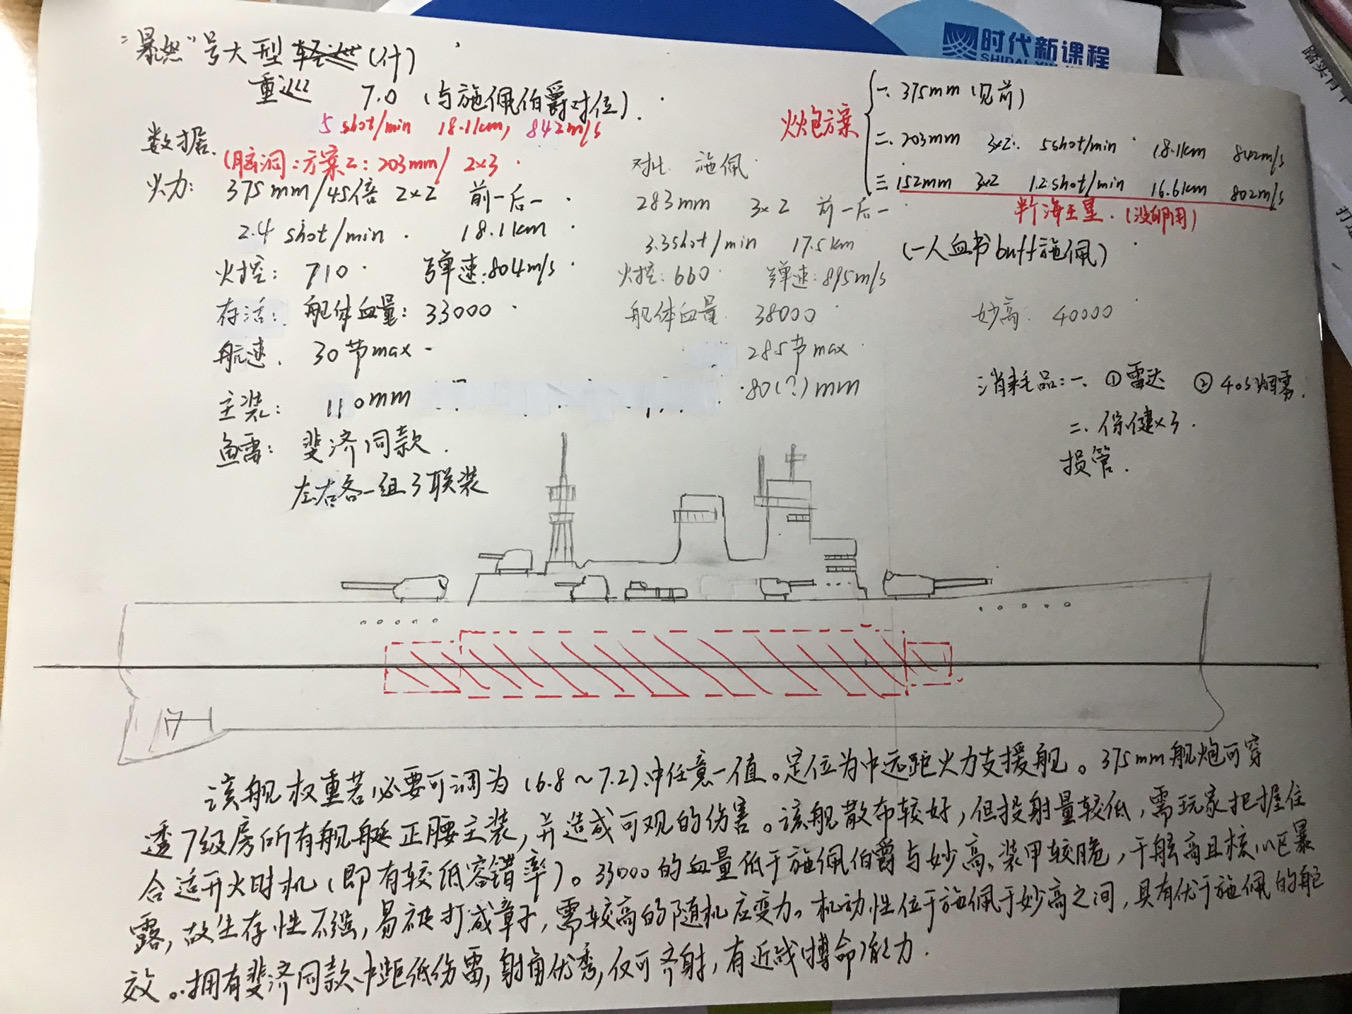 时代新课程
SHIDAI
“暴怒”号大型轻巡(什)
重巡 7.0 (与施佩伯爵对位).
5 shot/min 18.1km, 842m/s
数据.
(脑洞:方案2:203mm/ 2x3
火力: 375mm/45倍 2x2 前一后一
2.4 shot/min. 18.1km
火控: 710 弹速:804m/s
存活: 舰体血量: 33000
航速. 30节max
主装: 110mm
鱼雷: 斐济同款.
左右各一组3联装
对比 施佩
283mm 3x2 前一后一
3.3shot/min 17.5km
火控:660 弹速:895m/s
舰体血量 38000
285节max
80(?)mm
火炮方案
一. 375mm (见前)
二. 203mm 3x2 5shot/min 18.1km 842m/s
三 152mm 3x2 12shot/min 16.6km 802m/s
半片海王星.(没卵用)
(一人血书buff施佩)
妙高 40000
消耗品:一. ①雷达 ②40s烟雾.
二. 保健x3.
损管.
该舰权重若必要可调为(6.8~7.2)中任意一值。定位为中远距火力支援舰。375mm舰炮可穿
透7级房所有舰艇正腰主装,并造成可观的伤害。该舰散布较好,但投射量较低,需玩家把握住
合适开火时机(即有较低容错率)。33000的血量低于施佩伯爵与妙高、装甲较脆,干舷高且核心区暴
露,故生存性不强,易被打成章子,需较高的随机应变力。机动性位于施佩于妙高之间,具有优于施佩的舵
效。拥有斐济同款中距低伤雷,射角优秀,仅可齐射,有近战(搏命)能力.